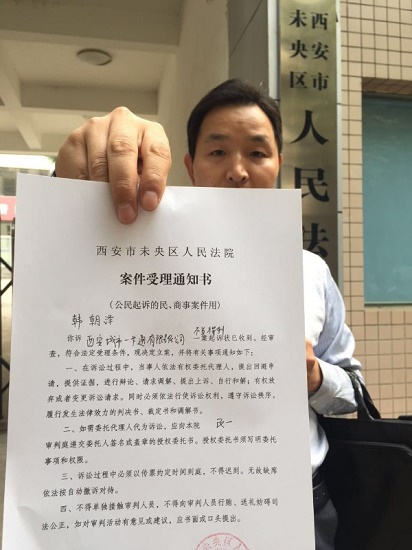 西安市
未央区
人民法
西安市未央区人民法院
案件受理通知书
（公民起诉的民、商事案件用）
韩朝洋
你诉 西安城市一卡通有限公司 不当得利 一案起诉状已收到。经审
查，符合法定受理条件，现决定立案，并将有关事项通知如下：
一、在诉讼过程中，当事人依法有权委托代理人，提出回避申
请，提供证据，进行辩论、请求调解、提出上诉、自行和解；有权放
弃或者变更诉讼请求。同时必须依法行使诉讼权利，遵守诉讼秩序，
履行发生法律效力的判决书、裁定书和调解书。
二、如需委托代理人代为诉讼，应向本院 民一
审判庭递交委托人签名或盖章的授权委托书。授权委托书须写明委托
事项和权限。
三、诉讼过程中必须以传票约定时间到庭，不得迟到。无故缺席
依法按自动撤诉对待。
四、不得单独接触审判人员，不得向审判人员行贿、送礼妨碍司
法公正，如对审判活动有意见或建议，应书面或口头提出。
央区人